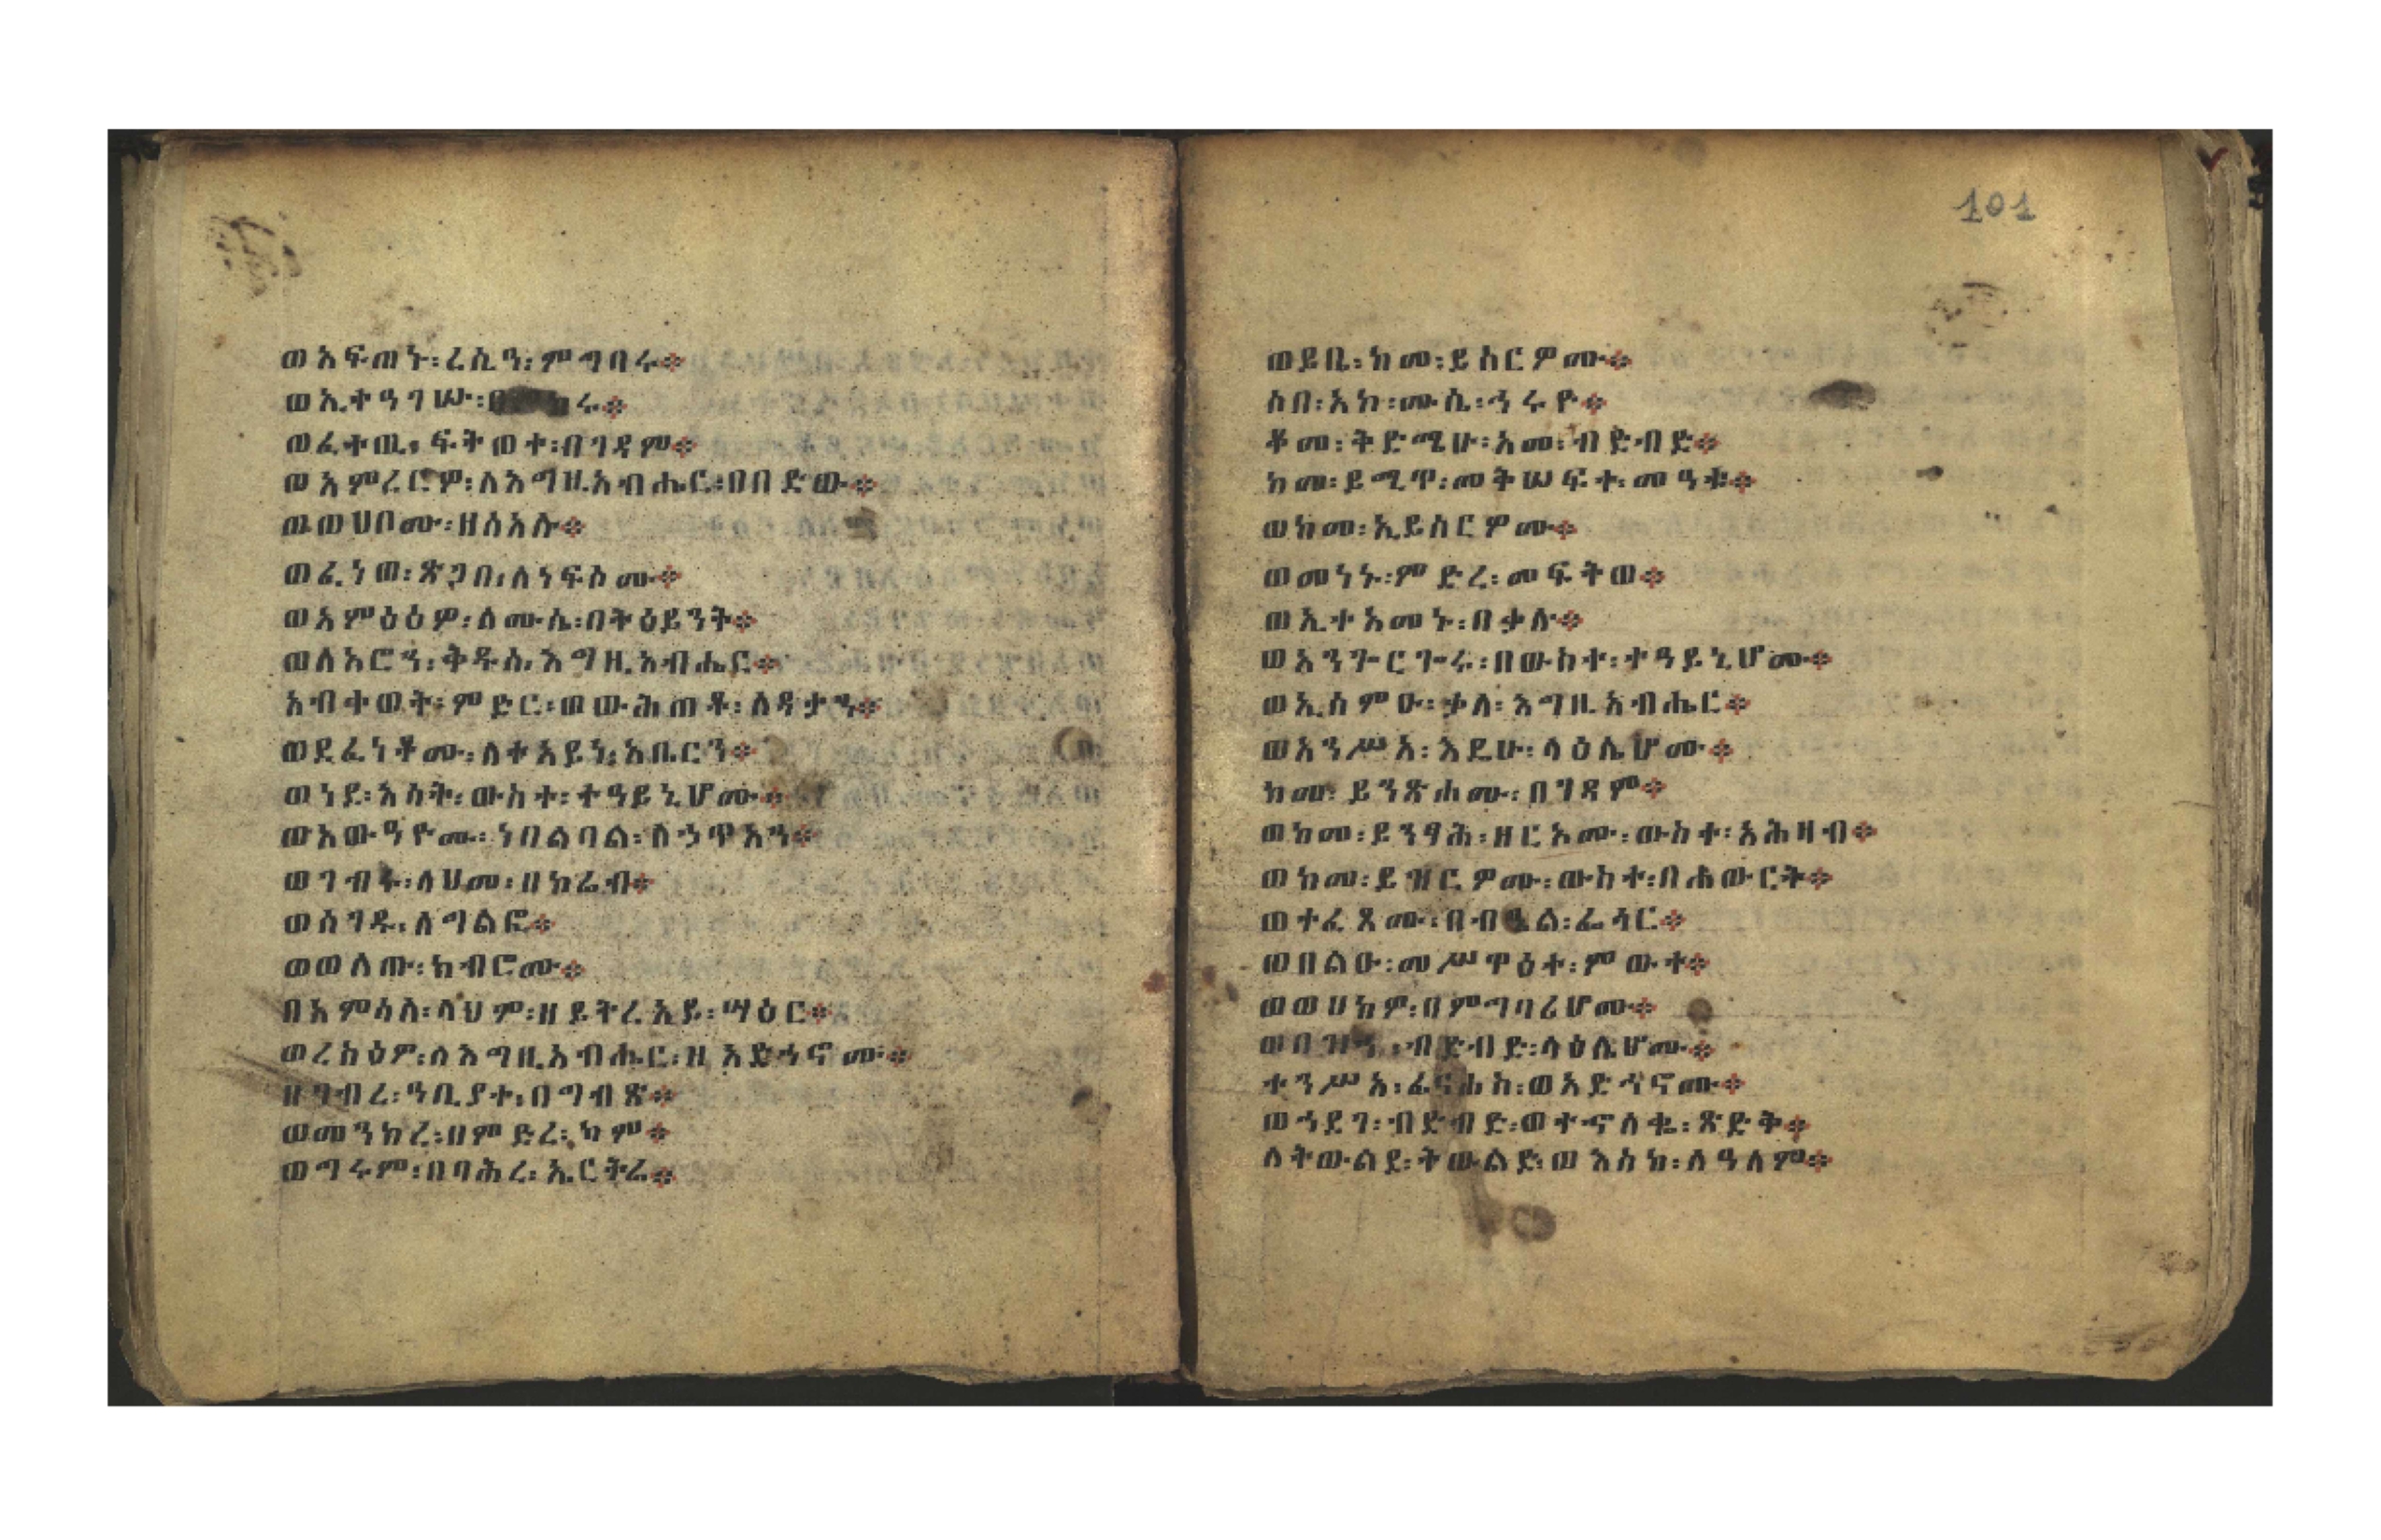 ወአፍጠኑ፡ረሲዓ፡ምግባሩ፨
ወኢተዓገሡ፡
ወፈተዉ፡ፍትወተ፡በገዳም፨
ወአምረርዎ፡ለእግዚአብሔር፡በበድው፨
ወወሀቦሙ፡ዘሰአሉ፨
ወፈነወ፡ጽጋበ፡ለነፍስሙ፨
ወአምዕዕዎ፡ለሙሴ፡በትዕይንት፨
ወለአሮን፡ቅዱሰ፡እግዚአብሔር፨
አብቀወት፡ምድር፡ወውሕጠቶ፡ለዳታን፨
ወደፈነቶሙ፡ለተአይነ፡አቤርን፨
ወነደ፡እሳት፡ውስተ፡ተዓይኒሆሙ፨
ወአውዓዮሙ፡ነበልባል፡ለኃጥአን፨
ወገብሩ፡ላህመ፡በኮሬብ፨
ወሰገዱ፡ለግልፎ፨
ወወለጡ፡ክብሮሙ፨
በአምሳለ፡ላህም፡ዘይትረአይ፡ሣዕር፨
ወረስዕዎ፡ለእግዚአብሔር፡ዘአድኅኖሙ፨
ዘገብረ፡ዓቢያተ፡በግብጽ፨
ወመንክረ፡በምድረ፡ካም፨
ወግሩም፡በባሕረ፡ኤርትራ፨
101
ወይቤ፡ከመ፡ይሰርዎሙ፨
ሶበ፡አኮ፡ሙሴ፡ኅሩዮ፨
ቆመ፡ቅድሜሁ፡አመ፡ብድብድ፨
ከመ፡ይሚጥ፡መቅሠፍተ፡መዓቱ፨
ወከመ፡ኢይሰርዎሙ፨
ወመነኑ፡ምድረ፡መፍትወ፨
ወኢተአመኑ፡በቃሉ፨
ወአንጐርጐሩ፡በውስተ፡ተዓይኒሆሙ፨
ወኢሰምዑ፡ቃለ፡እግዚአብሔር፨
ወአንሥአ፡እዴሁ፡ላዕሌሆሙ፨
ከመ፡ይንጽሖሙ፡በገዳም፨
ወከመ፡ይንፃሕ፡ዘርኦሙ፡ውስተ፡አሕዛብ፨
ወከመ፡ይዝርዎሙ፡ውስተ፡በሐውርት፨
ወተፈጸሙ፡በብዔል፡ፌጎር፨
ወበልዑ፡መሥዋዕተ፡ምውት፨
ወወሀክዎ፡በምግባሪሆሙ፨
ወበዝኀ፡ብድብድ፡ላዕሌሆሙ፨
ተንሥአ፡ፊንሐስ፡ወአድኀኖሙ፨
ወኀደገ፡ብድብድ፡ወተኆለቈ፡ጽድቀ፨
ለትውልደ፡ትውልድ፡ወእስከ፡ለዓለም፨